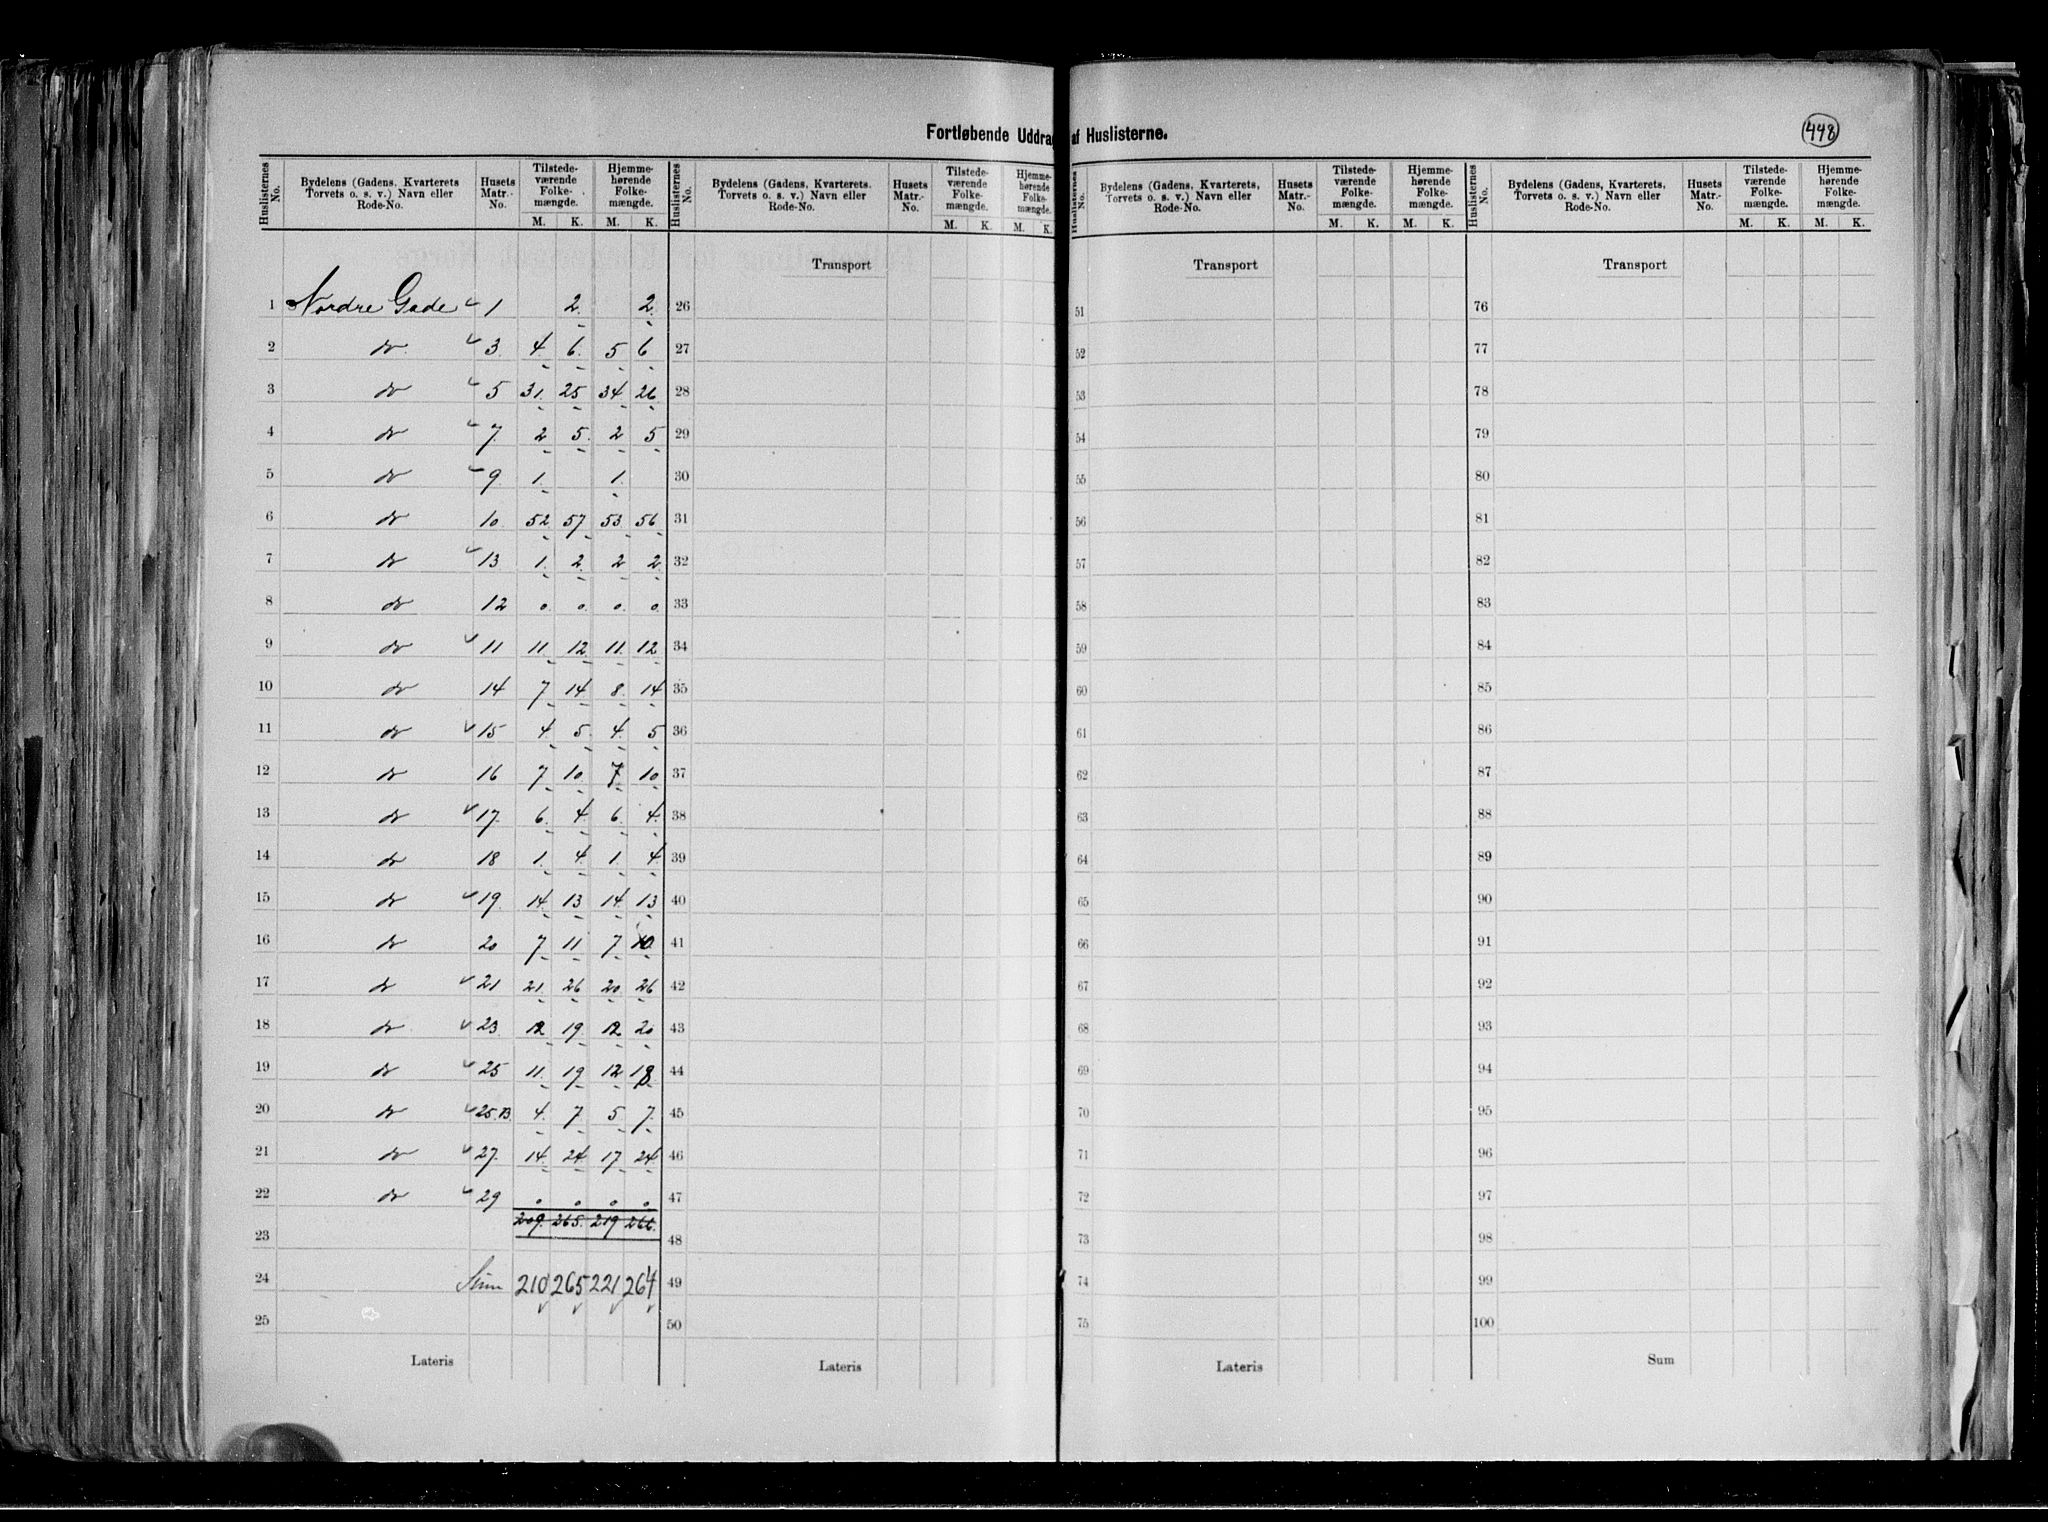 Fortløbende Uddrag af Huslisterne.
448
Huslisternes No. | Bydelens (Gadens, Kvarterets Torvets o. s. v.) Navn eller Rode-No. | Husets Matr.-No. | Tilstede-værende Folke-mængde. M. K. | Hjemme-hørende Folke-mængde. M. K.
Huslisternes No. | Bydelens (Gadens, Kvarterets. Torvets o. s. v.) Navn eller Rode-No. | Husets Matr.-No. | Tilstede-værende Folke-mængde. M. K. | Hjemme-hørende Folke-mængde. M. K.
Huslisternes No. | Bydelens (Gadens, Kvarterets, Torvets o. s. v.) Navn eller Rode-No. | Husets Matr.-No. | Tilstede-værende Folke-mængde. M. K. | Hjemme-hørende Folke-mængde. M. K.
Huslisternes No. | Bydelens (Gadens, Kvarterets, Torvets o. s. v.) Navn eller Rode-No. | Husets Matr.-No. | Tilstede-værende Folke-mængde. M. K. | Hjemme-hørende Folke-mængde. M. K.
Transport Transport Transport
1 Nordre Gade 1 2. 2. 26 51 76
2 do 3. 4. 6. 5 6 27 52 77
3 do 5 31. 25 34 26 28 53 78
4 do 7. 2 5. 2 5 29 54 79
5 do 9 1. 1. 30 55 80
6 do 10. 52 57 53. 56 31 56 81
7 do 13 1. 2. 2 2 32 57 82
8 do 12 0. 0. 0. 0. 33 58 83
9 do 11 11. 12. 11. 12 34 59 84
10 do 14 7 14 8. 14 35 60 85
11 do 15 4. 5 4. 5 36 61 86
12 do 16 7 10. 7 10 37 62 87
13 do 17. 6. 4 6. 4. 38 63 88
14 do 18 1. 4. 1. 4 39 64 89
15 do 19. 14. 13 14. 13 40 65 90
16 do 20 7 11 7 10. 41 66 91
17 do 21 21. 26 20 26 42 67 92
18 do 23. 12 19. 12 20 43 68 93
19 do 25 11. 19 12 18 44 69 94
20 do 25.B. 4. 7. 5 7. 45 70 95
21 do 27. 14. 24 17 24 46 71 96
22 do 29 0 0 0 0 47 72 97
23 209. 265. 219 266. 48 73 98
24 Sum 210 265 221 264 49 74 99
25 50 75 100
Lateris Lateris Lateris Sum